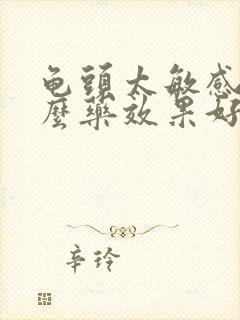 龟頭太敏感
麼藥效果好
辛玲